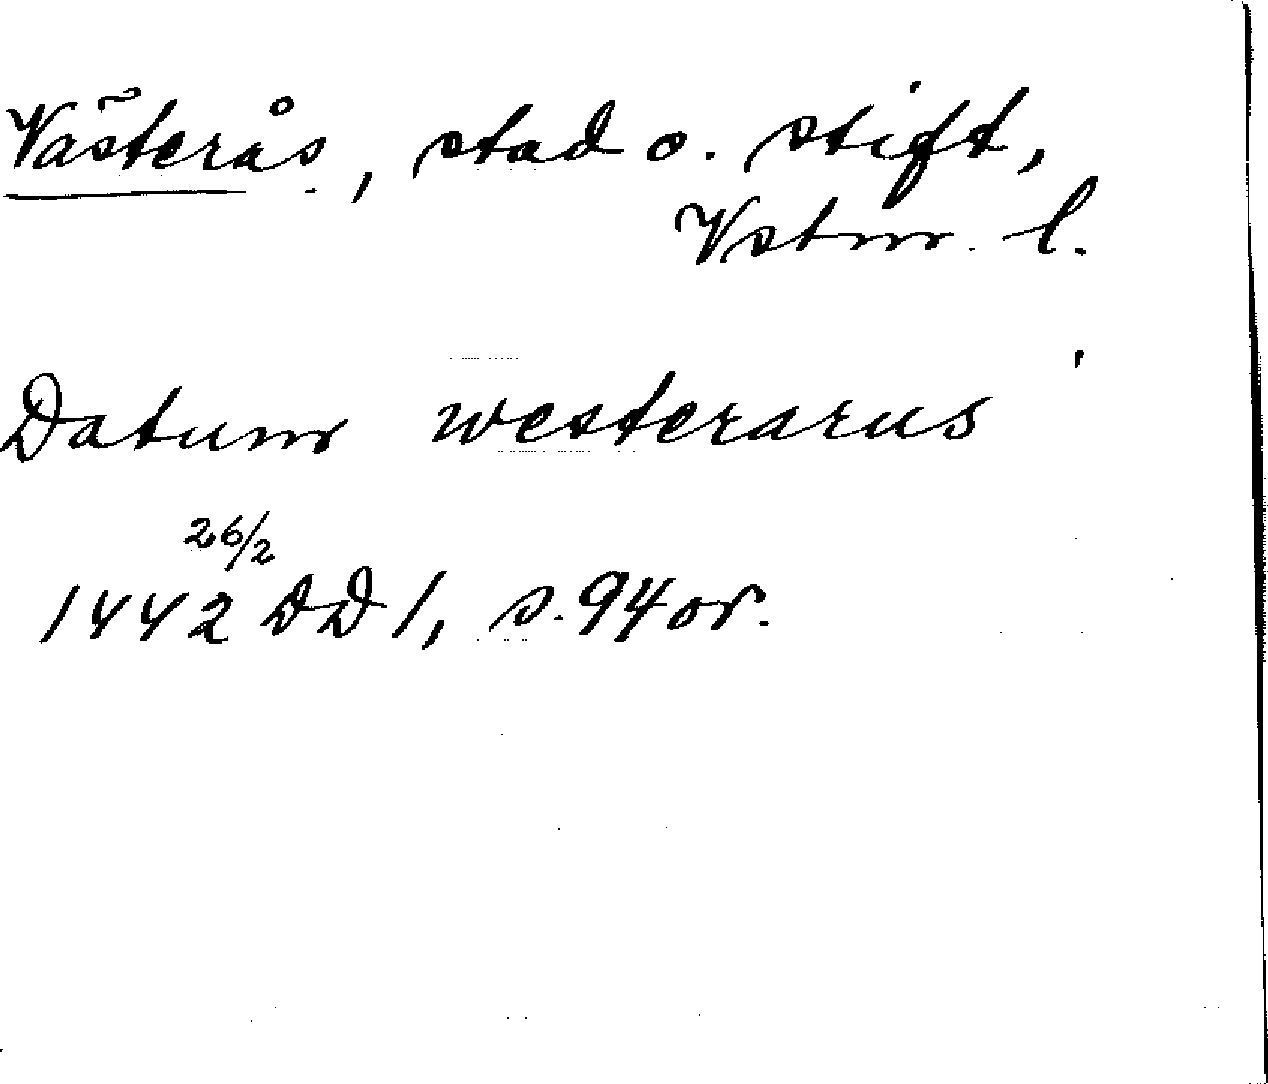 Västerås, stad o. stift,
Vstm. l.
Datum westerarus
26/2
1442 DD 1, s. 94 or.